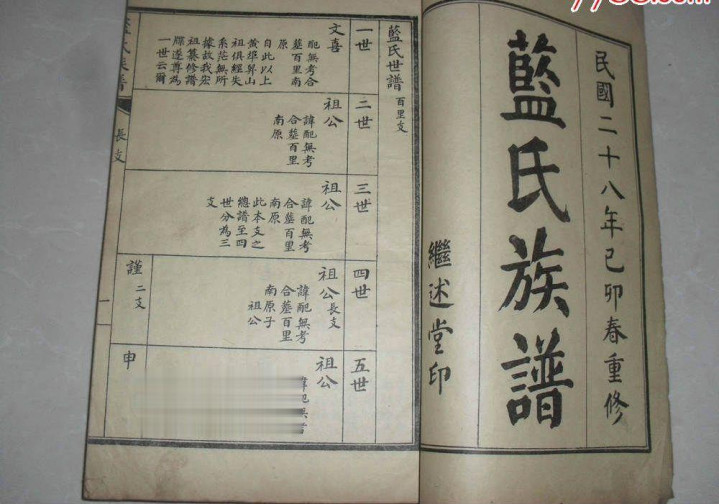 民國二十八年己卯春重修
藍氏族譜
繼述堂印
藍氏世譜 百里支
一世
文喜
配無考合
墓百里南
原
自此以上
祖俱經失
系茫無所
據故我宏
祖纂修譜
牒遂尊為
一世云爾
二世
祖公
諱配無考
合墓百里
南原
三世
祖公
諱配無考
合墓百里
南原
此本支之
總譜至四
世分為三
支
四世
祖公長支
諱配無考
合墓百里
南原子
祖公
謹 二支
五世
祖公
申
藍氏族譜
長支
一